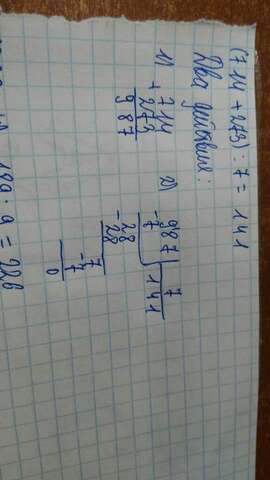 (714 + 273) : 7 = 141
Два действия:
1) 714
+
273
987
2) 987 | 7
- 7 141
28
- 28
7
- 7
0
189 · a = 226